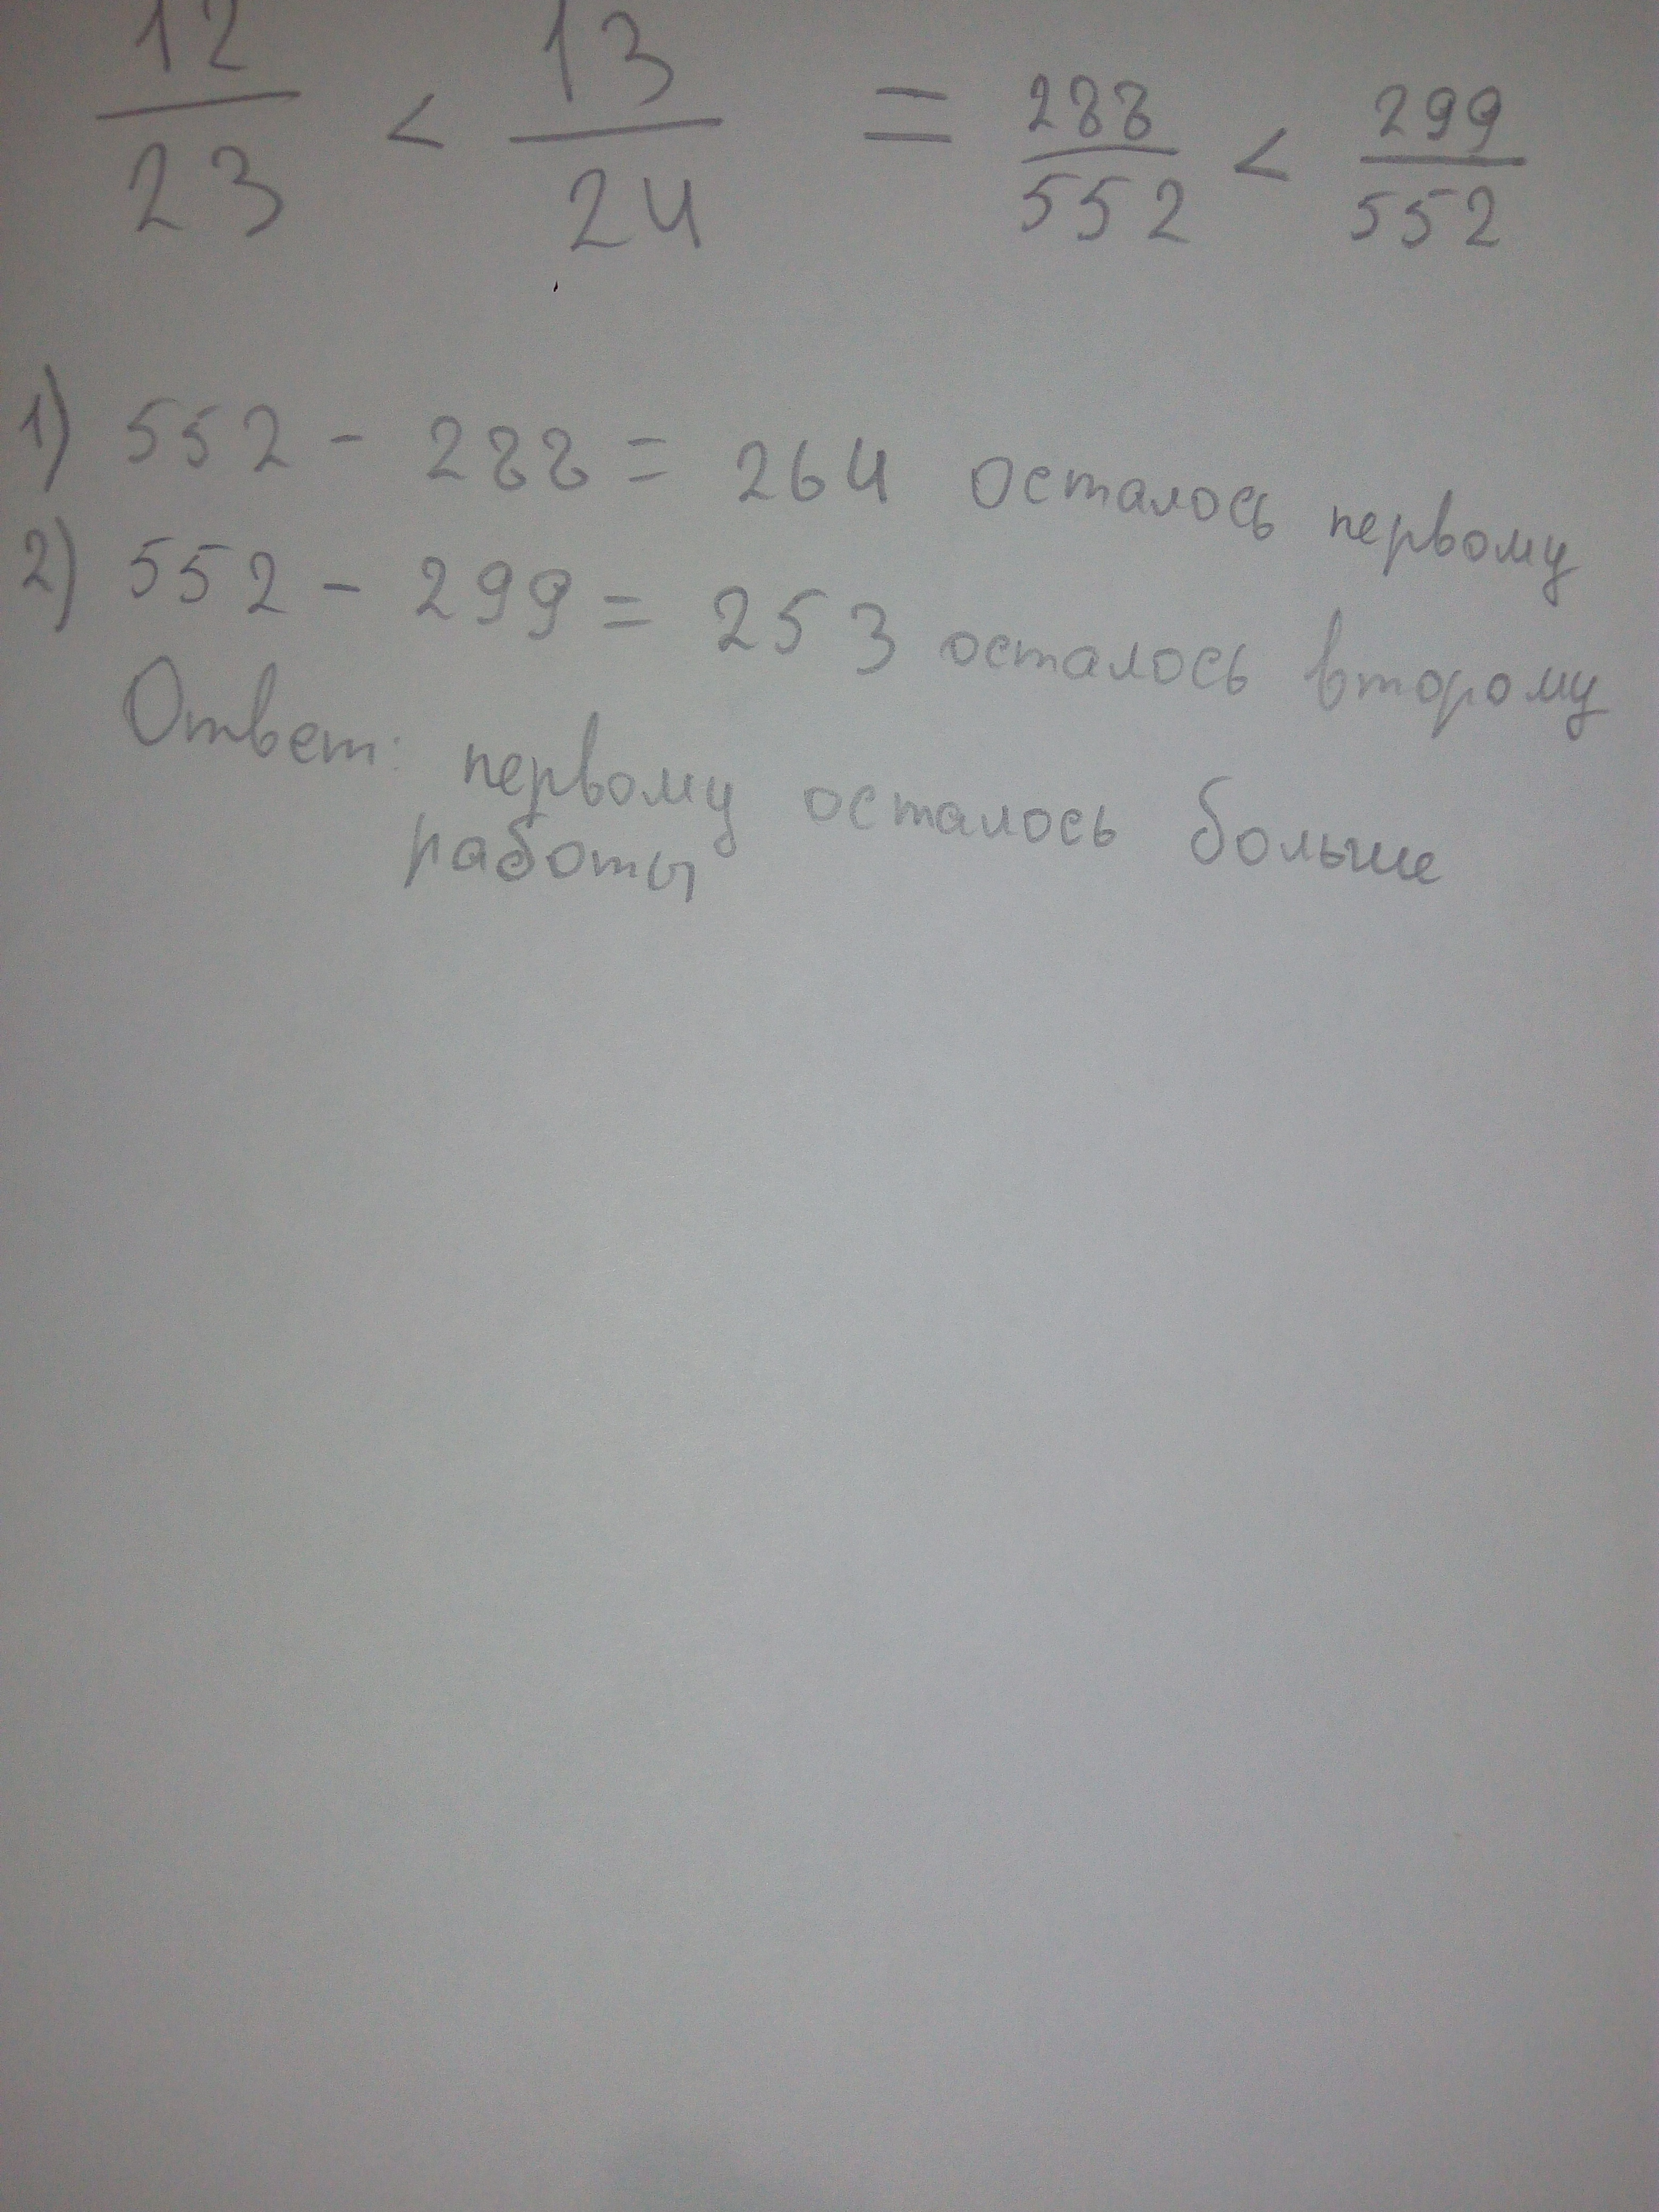 12/23 < 13/24 = 288/552 < 299/552
1) 552 - 288 = 264 осталось первому
2) 552 - 299 = 253 осталось второму
Ответ: первому осталось больше
работы